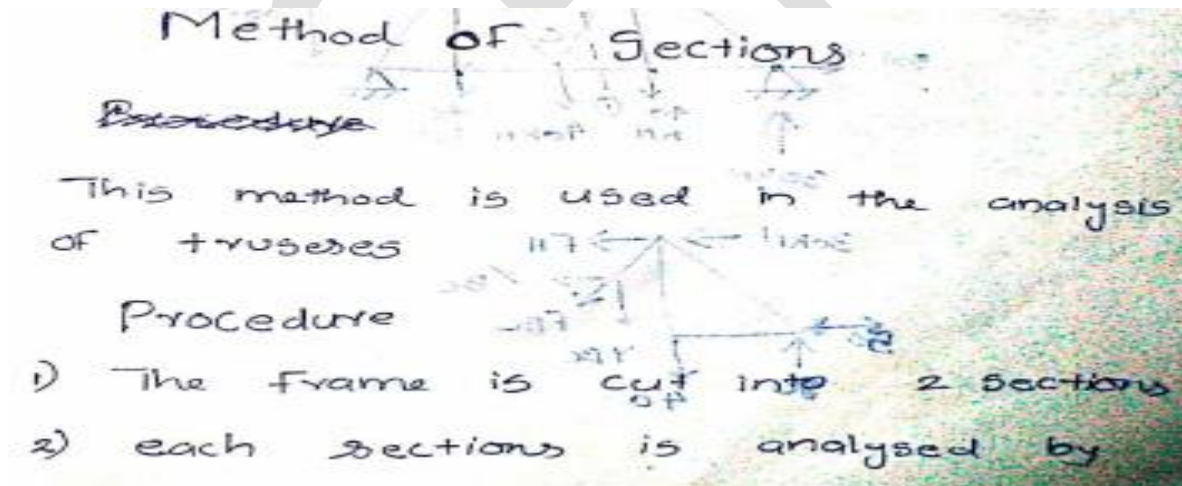 Method of Sections
This method is used in the analysis
of truseses
Procedure
1) The frame is cut into 2 sections
2) each sections is analysed by